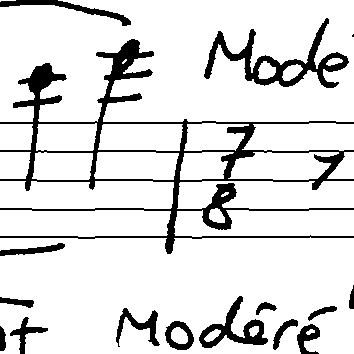 Modé
7
8
Modéré